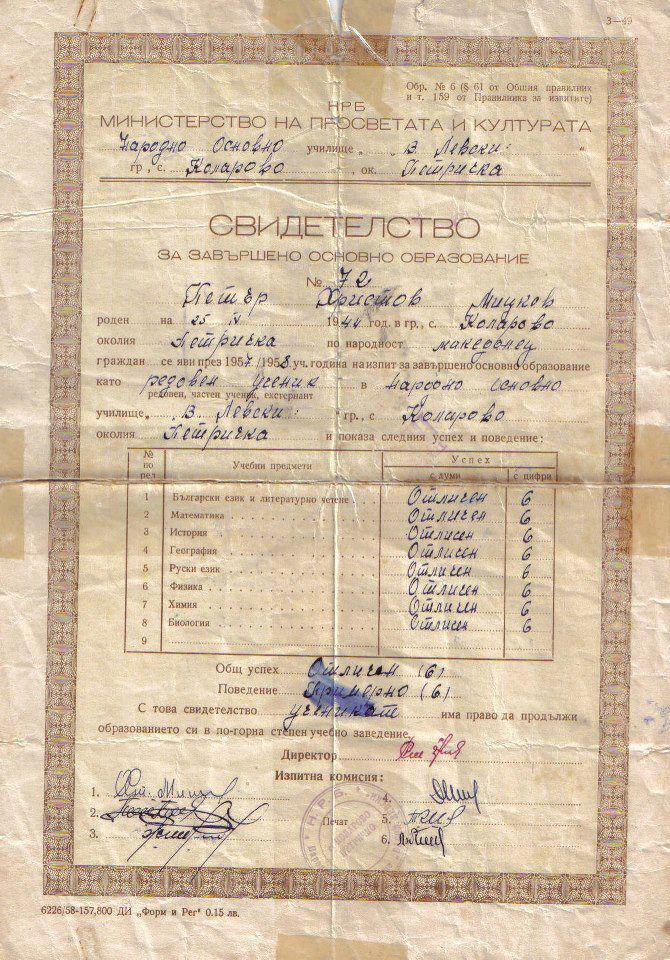 3—49
Обр. № 6 (§ 61 от Общия правилник
и т. 159 от Правилника за изпитите)
НРБ
МИНИСТЕРСТВО НА ПРОСВЕТАТА И КУЛТУРАТА
Народно Основно училище „ В. Левски "
гр., с. Коларово , ок. Петричка
СВИДЕТЕЛСТВО
ЗА ЗАВЪРШЕНО ОСНОВНО ОБРАЗОВАНИЕ
№ 72
Петър Христов Мицков
роден на 25 IV 1944 год. в гр., с. Коларово
околия Петричка по народност македонец
граждан се яви през 1957/1958 уч. година на изпит за завършено основно образование
като редовен ученик в народно основно
редовен, частен ученик, екстернант
училище „ В. Левски " гр., с Коларово
околия Петричка и показа следния успех и поведение:
№ по ред Учебни предмети Успех
с думи с цифри
1 Български език и литературно четене Отличен 6
2 Математика Отличен 6
3 История Отличен 6
4 География Отличен 6
5 Руски език Отличен 6
6 Физика Отличен 6
7 Химия Отличен 6
8 Биология Отличен 6
9
Общ успех Отличен (6)
Поведение Примерно (6)
С това свидетелство ученикате има право да продължи
образованието си в по-горна степен учебно заведение.
Директор
Изпитна комисия:
1. 4.
2. Печат 5.
3. 6.
Н.Р.Б.
6226/58-157,800 ДИ „Форм и Рег" 0.15 лв.